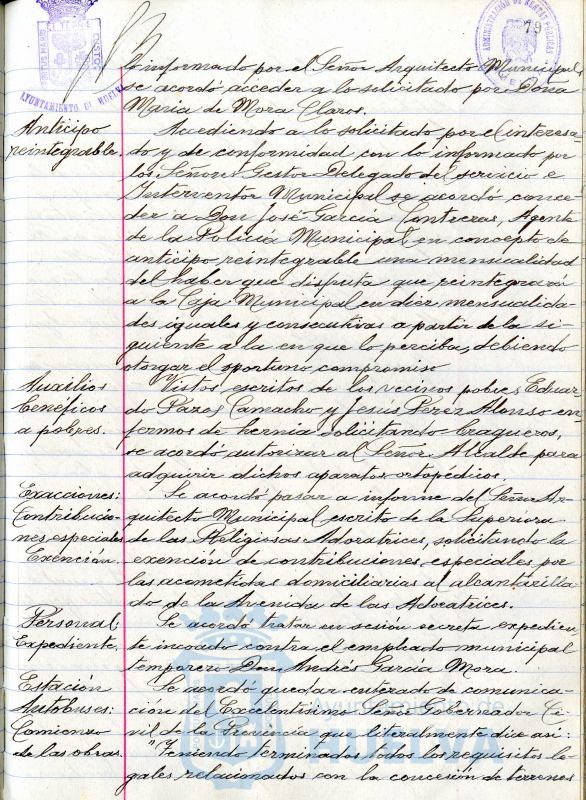 AYUNTAMIENTO DE HUELVA
ADMINISTRACIÓN DE RENTAS PÚBLICAS
79
lo informado por el Señor Arquitecto Municipal,
se acordó acceder a lo solicitado por Doña
Maria de Mora Claros.
Anticipo
reintegrable.
Accediendo a lo solicitado por el interesa-
do y de conformidad con lo informado por
los Señores Gestor Delegado del servicio e
Interventor Municipal se acordó conce-
der a Don José García Contreras, Agente
de la Policía Municipal, en concepto de
anticipo reintegrable una mensualidad
del haber que disfruta que reintegrará
a la Caja Municipal en diez mensualida-
des iguales y consecutivas a partir de la si-
guiente a la en que lo perciba, debiendo
otorgar el oportuno compromiso
Auxilios
benéficos
a pobres.
Vistos escritos de los vecinos pobres Eduar-
do Pazos Camacho y Jesús Pérez Alonso en-
fermos de hernia solicitando bragueros,
se acordó autorizar al Señor Alcalde para
adquirir dichos aparatos ortopédicos.
Exacciones:
Contribucio-
nes especiales
Exención.
Se acordó pasar a informe del Señor Ar-
quitecto Municipal escrito de la Superiora
de las Religiosas Adoratrices, solicitando la
exención de contribuciones especiales por
las acometidas domiciliarias al alcantarilla-
do de la Avenida de las Adoratrices.
Personal:
Expediente.
Se acordó tratar en sesión secreta expedien-
te incoado contra el empleado municipal
temporero Don Andrés García Mora.
Estación
Autobuses:
Comienzo
de las obras.
Se acordó quedar enterado de comunica-
ción del Excelentísimo Señor Gobernador Ci-
vil de la Provincia que literalmente dice así:
"Teniendo terminados todos los requisitos le-
gales relacionados con la concesión de terrenos
Ayuntamiento de
HUELVA